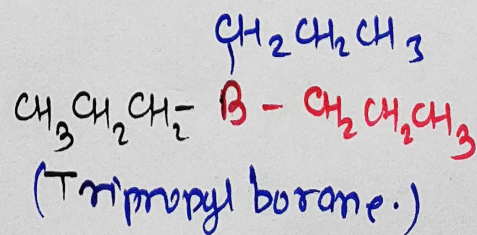 CH₂CH₂CH₃
CH₃CH₂CH₂- B - CH₂CH₂CH₃
(Tripropyl borane.)